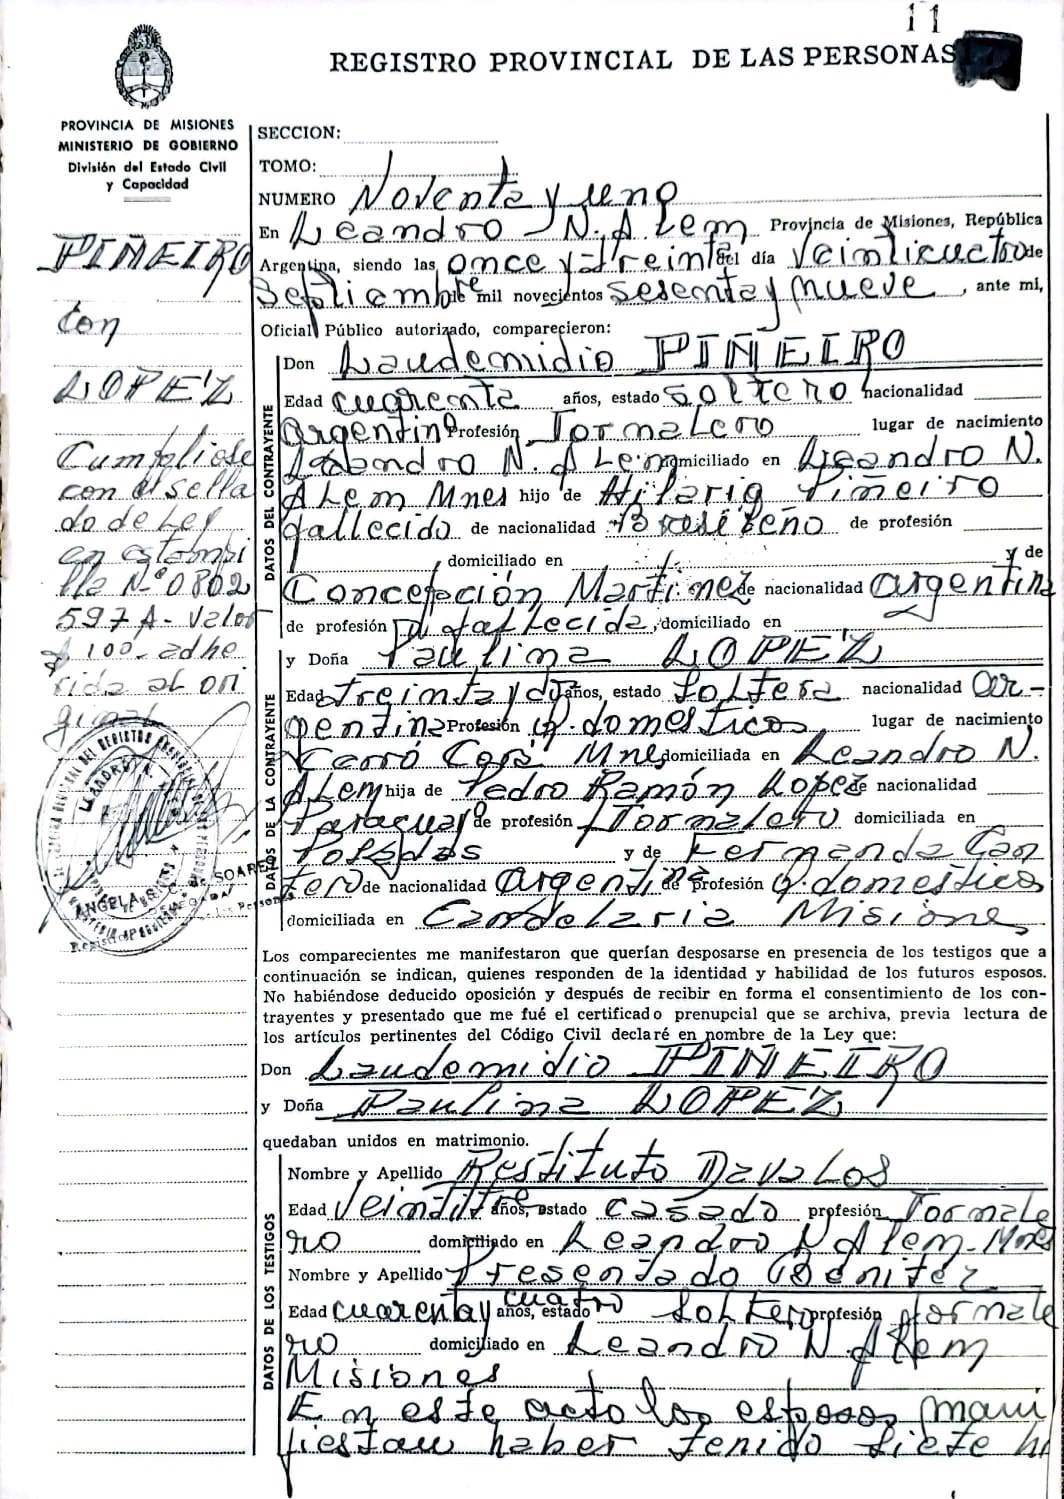 11
REGISTRO PROVINCIAL DE LAS PERSONAS
PROVINCIA DE MISIONES
MINISTERIO DE GOBIERNO
División del Estado Civil
y Capacidad
PIÑEIRO
con
LOPEZ
Cumpliose
con el sella
do de Ley
en estampi
lla Nº 0802
597 A - Valor
$ 100 - adhe
rida al ori
ginal
SECCION:
TOMO:
NUMERO Noventa y uno
En Leandro N. Alem Provincia de Misiones, República
Argentina, siendo las once y treinta del día Veinticuatro de
Septiembre de mil novecientos sesenta y nueve, ante mi,
Oficial Público autorizado, comparecieron:
DATOS DEL CONTRAYENTE
Don Laudemidio PIÑEIRO
Edad cuarenta años, estado soltero nacionalidad
argentino Profesión Jornalero lugar de nacimiento
Leandro N. Alem domiciliado en Leandro N.
Alem Mnes hijo de Hilario Piñeiro
fallecido de nacionalidad Brasileño de profesión
, domiciliado en y de
Concepción Martinez de nacionalidad argentina
de profesión fallecida, domiciliado en
DATOS DE LA CONTRAYENTE
y Doña Paulina LOPEZ
Edad treinta y dos años, estado soltera nacionalidad Ar-
gentina Profesión q. domesticos lugar de nacimiento
Cerró Corá Mnes domiciliada en Leandro N.
Alem hija de Pedro Ramón Lopez de nacionalidad
Paraguayo de profesión Jornalero domiciliada en
Posadas y de Fernanda Can
tero de nacionalidad argentina de profesión q. domestico
domiciliada en Candelaria Misiones
Los comparecientes me manifestaron que querían desposarse en presencia de los testigos que a
continuación se indican, quienes responden de la identidad y habilidad de los futuros esposos.
No habiéndose deducido oposición y después de recibir en forma el consentimiento de los con-
trayentes y presentado que me fué el certificado prenupcial que se archiva, previa lectura de
los artículos pertinentes del Código Civil declaré en nombre de la Ley que:
Don Laudemidio PIÑEIRO
y Doña Paulina LOPEZ
quedaban unidos en matrimonio.
DATOS DE LOS TESTIGOS
Nombre y Apellido Restituto Davalos
Edad Veintitres años, estado casado profesión Jornale
ro domiciliado en Leandro N Alem - Mnes
Nombre y Apellido Presentado Benitez
Edad cuarenta y cuatro años, estado soltero profesión jornale
ro domiciliado en Leandro N. Alem
Misiones
En este acto los esposos mani
fiestan haber tenido siete hi